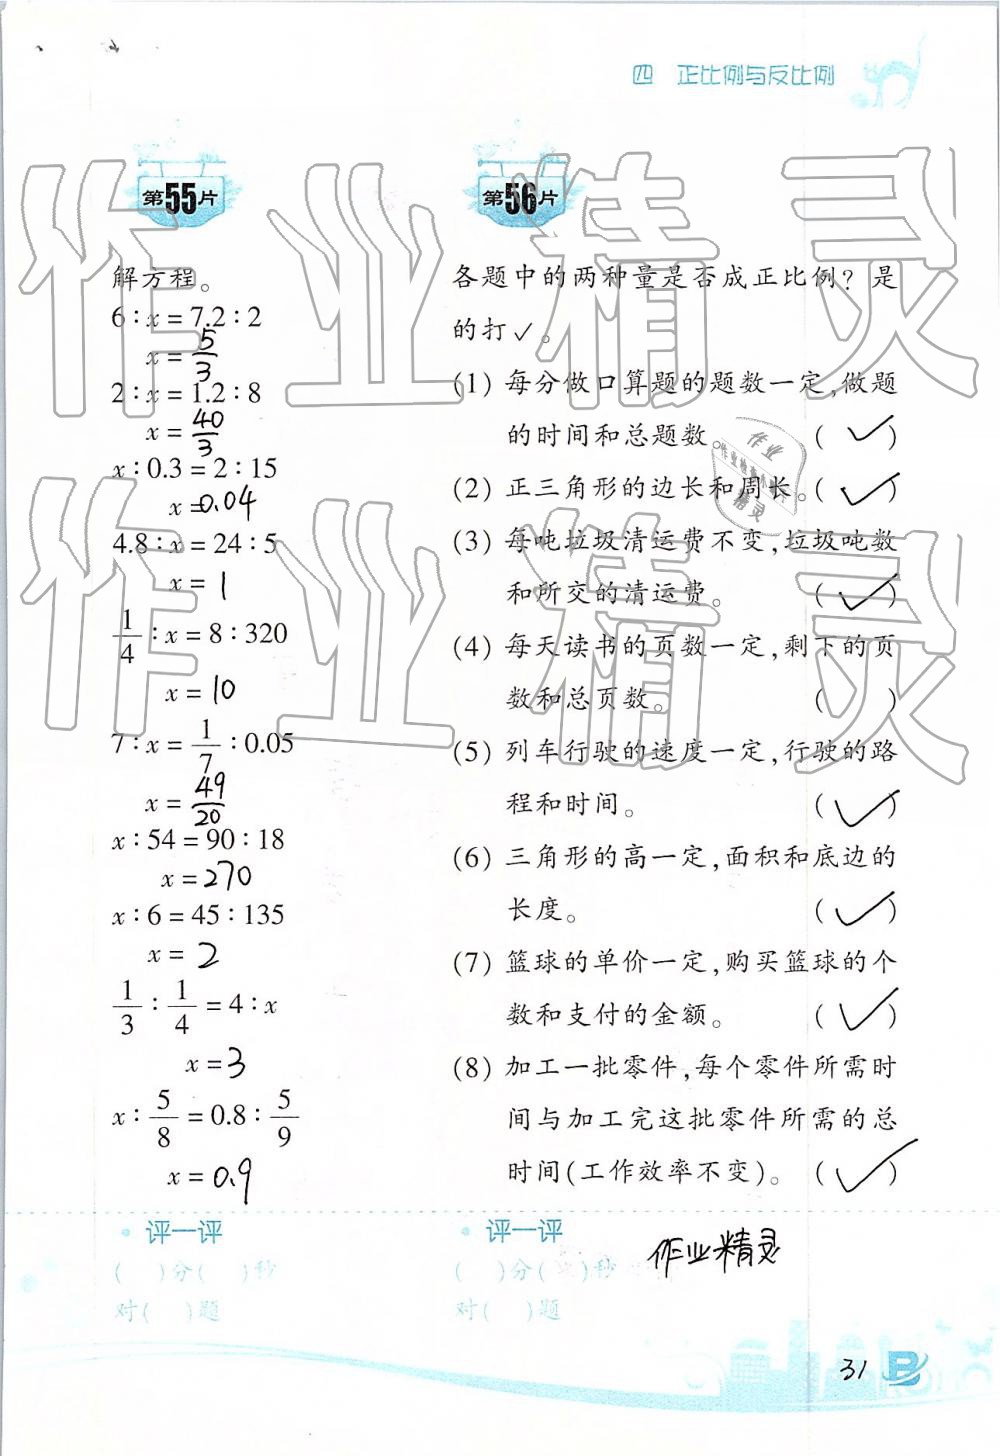 四 正比例与反比例
第55片
解方程。
6∶x=7.2∶2
x=5/3
2∶x=1.2∶8
x=40/3
x∶0.3=2∶15
x=0.04
4.8∶x=24∶5
x=1
1/4∶x=8∶320
x=10
7∶x=1/7∶0.05
x=49/20
x∶54=90∶18
x=270
x∶6=45∶135
x=2
1/3∶1/4=4∶x
x=3
x∶5/8=0.8∶5/9
x=0.9
评一评
( )分( )秒
对( )题
第56片
各题中的两种量是否成正比例？是
的打✓。
(1) 每分做口算题的题数一定，做题
的时间和总题数。 (✓)
(2) 正三角形的边长和周长。(✓)
(3) 每吨垃圾清运费不变，垃圾吨数
和所交的清运费。 (✓)
(4) 每天读书的页数一定，剩下的页
数和总页数。 ( )
(5) 列车行驶的速度一定，行驶的路
程和时间。 (✓)
(6) 三角形的高一定，面积和底边的
长度。 (✓)
(7) 篮球的单价一定，购买篮球的个
数和支付的金额。 (✓)
(8) 加工一批零件，每个零件所需时
间与加工完这批零件所需的总
时间(工作效率不变)。 (✓)
评一评
( )分( )秒
对( )题
作业精灵
31
作业精灵
作业精灵
作业
精灵